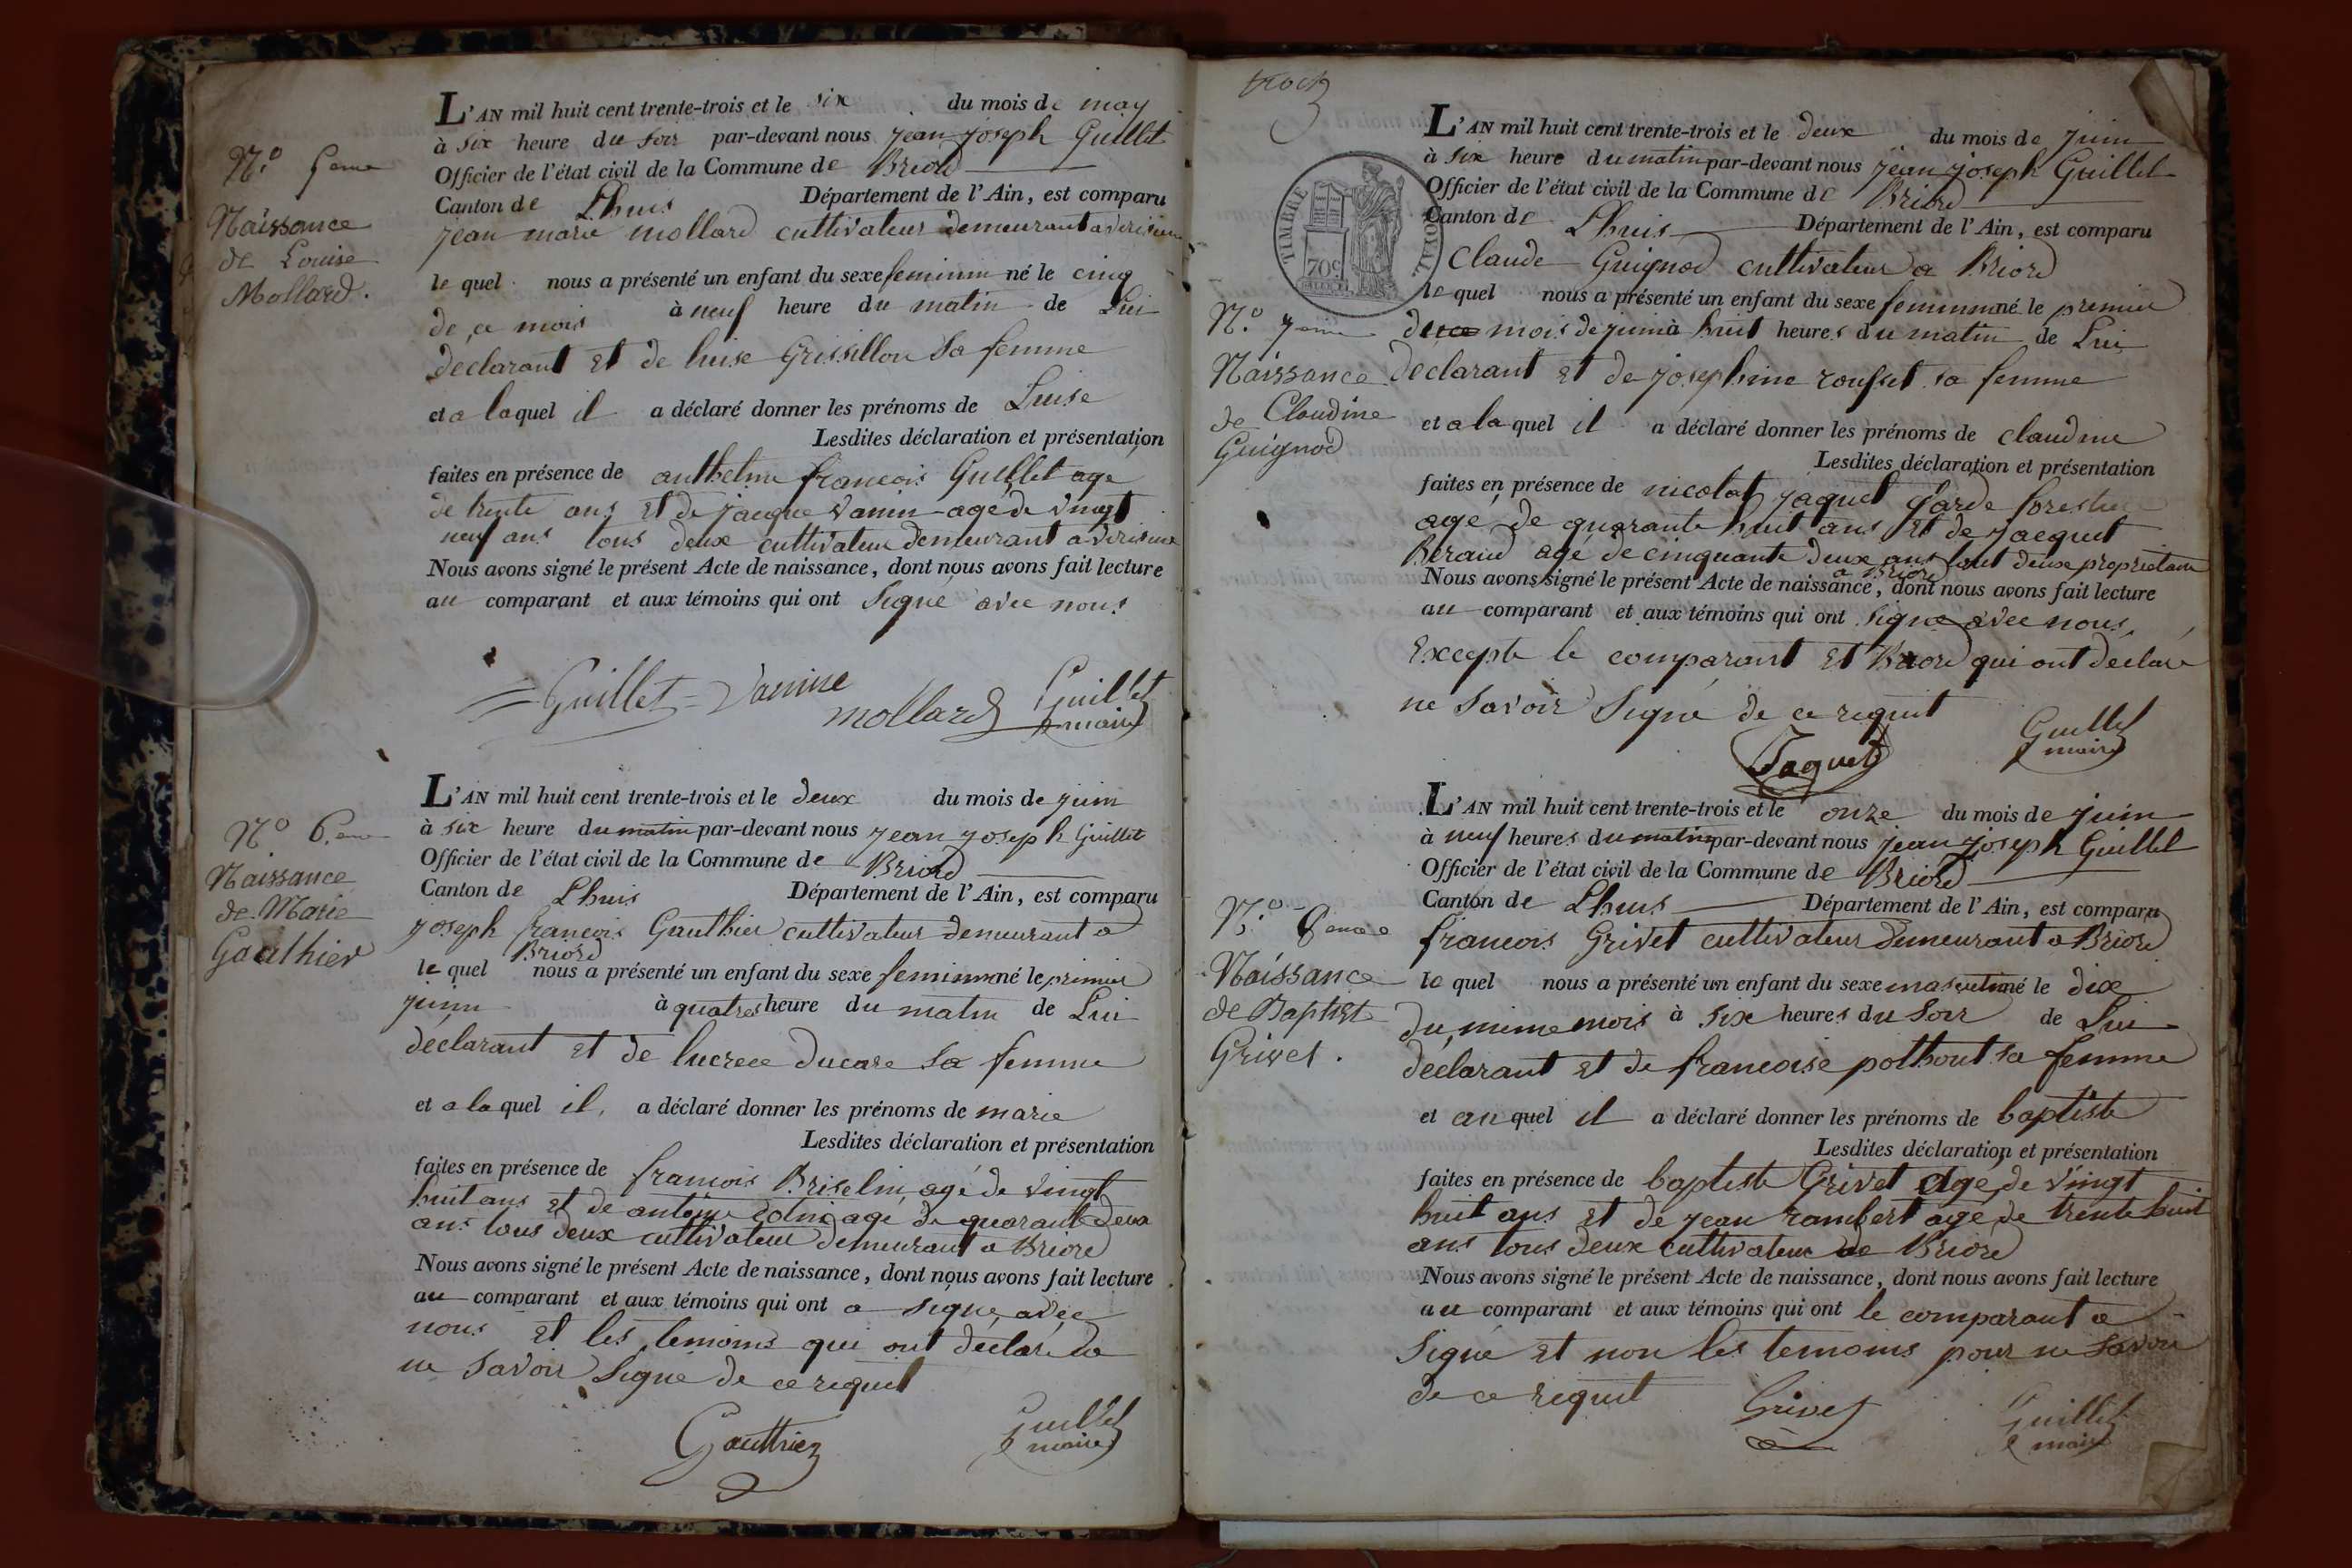 L'AN mil huit cent trente-trois et le six du mois de may
à six heure du soir par-devant nous jean joseph Guillet
Officier de l'état civil de la Commune de Briord
Canton de Lhuis Département de l'Ain, est comparu
jean marie mollard cultivateur demeurant a
le quel nous a présenté un enfant du sexe feminin né le cinq
de ce mois à neuf heure du matin de Lui
declarant et de luise Grissillon sa femme
et a la quel il a déclaré donner les prénoms de Luise
Lesdites déclaration et présentation
faites en présence de anthelme francois Guillet age
de trente ans et de jacque vanin agé de vingt
neuf ans tous deux cultivateur demeurant a
Nous avons signé le présent Acte de naissance, dont nous avons fait lecture
au comparant et aux témoins qui ont Signé avec nous
Guillet Vanine
mollard Guillet
maire
N.° 5eme
Naissance
de Louise
Mollard.
L'AN mil huit cent trente-trois et le deux du mois de juin
à six heure du matin par-devant nous jean joseph Guillet
Officier de l'état civil de la Commune de Briord
Canton de Lhuis Département de l'Ain, est comparu
joseph francois Gauthier cultivateur demeurant a
Briord
le quel nous a présenté un enfant du sexe feminin né le premier
juin à quatres heure du matin de Lui
déclarant et de lucrece Ducare sa femme
et a la quel il a déclaré donner les prénoms de marie
Lesdites déclaration et présentation
faites en présence de francois Briselin agé de vingt
huit ans et de antoine agé de quarante deux
ans tous deux cultivateur demeurant a Briord
Nous avons signé le présent Acte de naissance, dont nous avons fait lecture
au comparant et aux témoins qui ont a signé avec
nous et les temoins qui ont déclaré
ne savoir Signé de ce requit
Gauthier Guillet
maire
N° 6.eme
Naissance
de Marie
Gauthier
TIMBRE ROYAL
70c
L'AN mil huit cent trente-trois et le deux du mois de juin
à six heure du matin par-devant nous jean joseph Guillet
Officier de l'état civil de la Commune de Briord
Canton de Lhuis Département de l'Ain, est comparu
Claude Guignod cultivateur a Briord
le quel nous a présenté un enfant du sexe feminin né le premier
mois de juin à huit heures du matin de Lui
declarant et de josephine rousset sa femme
et a la quel il a déclaré donner les prénoms de claudine
Lesdites déclaration et présentation
faites en présence de nicolat jaquet garde forestier
agé de quarante huit ans et de jacquet
Beraud agé de cinquante deux ans tout deux proprietaire
a Briord
Nous avons signé le présent Acte de naissance, dont nous avons fait lecture
au comparant et aux témoins qui ont Signé avec nous
Excepte le comparant et Briord qui ont declaré
ne savoir Signé de ce requit
Jaquet Guillet
maire
N.° 7eme
Naissance
de Claudine
Guignod
L'AN mil huit cent trente-trois et le onze du mois de juin
à neuf heures du matin par-devant nous jean joseph Guillet
Officier de l'état civil de la Commune de Briord
Canton de Lhuis Département de l'Ain, est comparu
francois Grivet cultivateur demeurant a Briord
le quel nous a présenté un enfant du sexe masculin né le dix
du mime mois à six heures du soir de Lui
declarant et de francoise pothout sa femme
et au quel il a déclaré donner les prénoms de baptiste
Lesdites déclaration et présentation
faites en présence de baptiste Grivet agé de vingt
huit ans et de jean rambert agé de trente huit
ans tous deux cultivateur de Briord
Nous avons signé le présent Acte de naissance, dont nous avons fait lecture
au comparant et aux témoins qui ont le comparant a
Signé et non les temoins pour ne savoir
de ce requit
Grivet Guillet
maire
N.° 8eme
Naissance
de Baptist
Grivet.